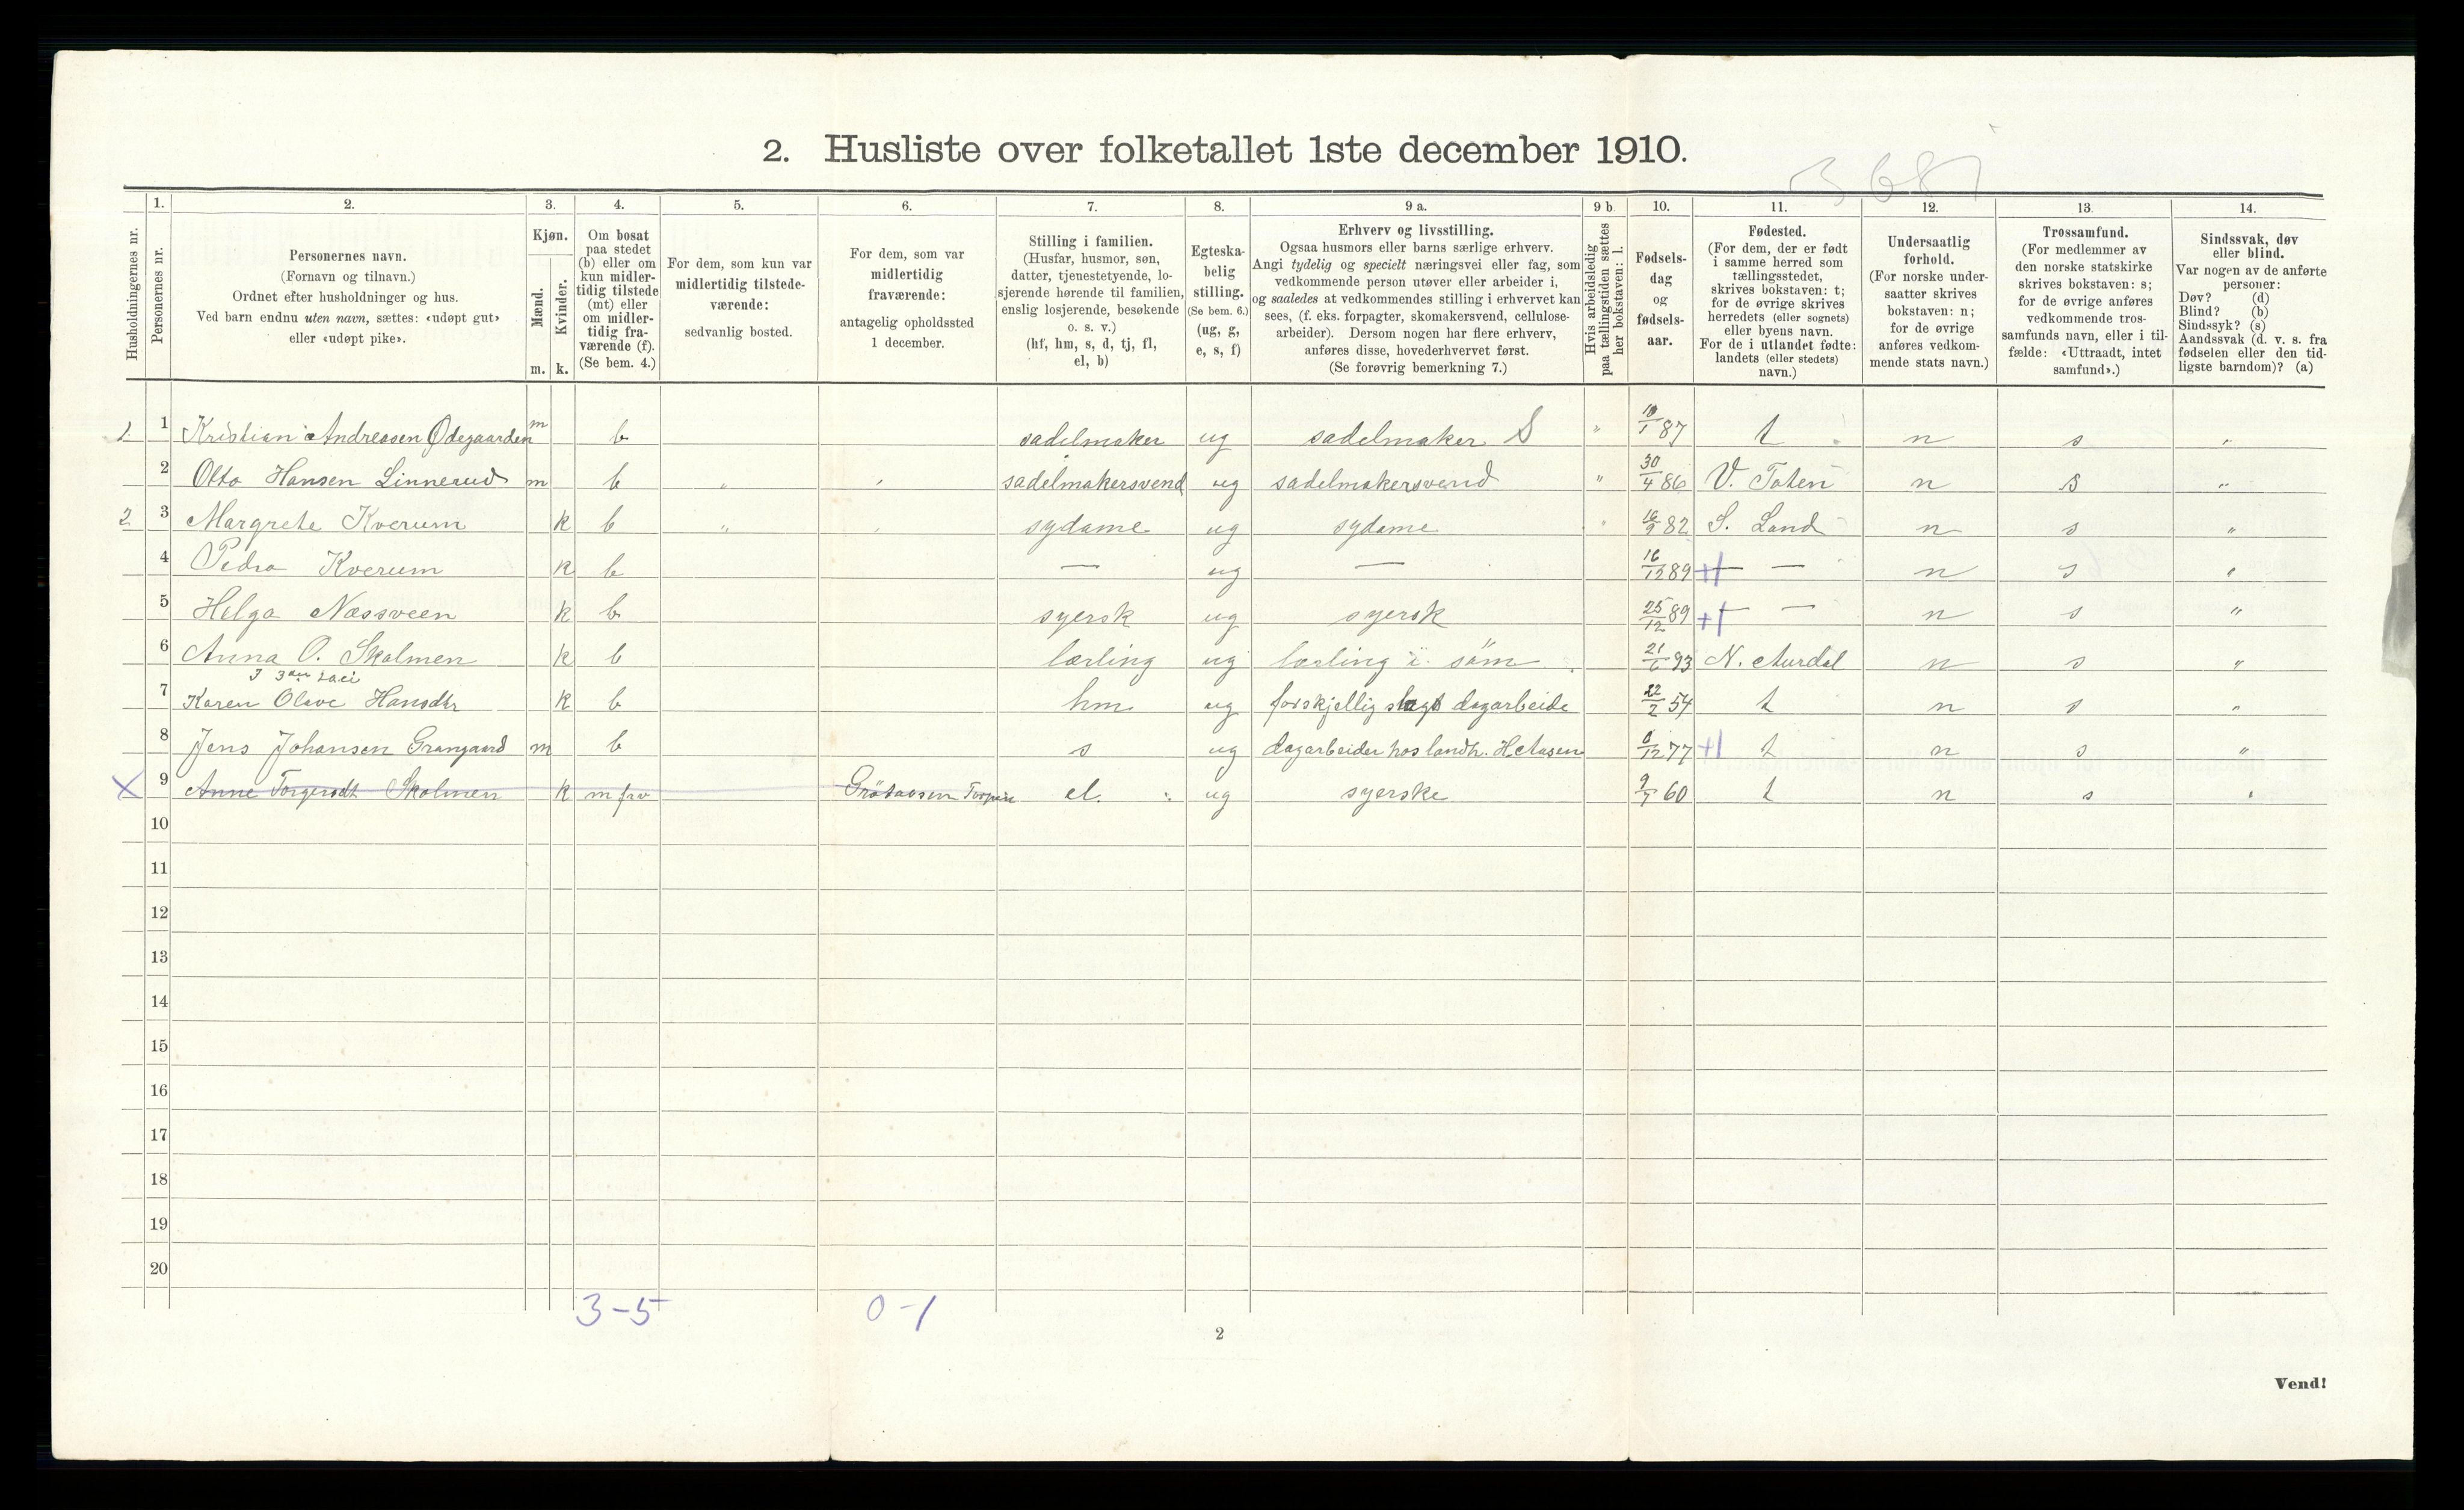 2. Husliste over folketallet 1ste december 1910.
3687
Husholdningernes nr.
1.
Personernes nr.
2.
Personernes navn.
(Fornavn og tilnavn.)
Ordnet efter husholdninger og hus.
Ved barn endnu uten navn, sættes: «udøpt gut»
eller «udøpt pike».
3.
Kjøn.
Mænd.
Kvinder.
m. k.
4.
Om bosat
paa stedet
(b) eller om
kun midler-
tidig tilstede
(mt) eller
om midler-
tidig fra-
værende (f).
(Se bem. 4.)
5.
For dem, som kun var
midlertidig tilstede-
værende:
sedvanlig bosted.
6.
For dem, som var
midlertidig
fraværende:
antagelig opholdssted
1 december.
7.
Stilling i familien.
(Husfar, husmor, søn,
datter, tjenestetyende, lo-
sjerende hørende til familien,
enslig losjerende, besøkende
o. s. v.)
(hf, hm, s, d, tj, fl,
el, b)
8.
Egteska-
belig
stilling.
(Se bem. 6.)
(ug, g,
e, s, f)
9 a.
Erhverv og livsstilling.
Ogsaa husmors eller barns særlige erhverv.
Angi tydelig og specielt næringsvei eller fag, som
vedkommende person utøver eller arbeider i,
og saaledes at vedkommendes stilling i erhvervet kan
sees, (f. eks. forpagter, skomakersvend, cellulose-
arbeider). Dersom nogen har flere erhverv,
anføres disse, hovederhvervet først.
(Se forøvrig bemerkning 7.)
9 b.
Hvis arbeidsledig
paa tællingstiden sættes
her bokstaven: l.
10.
Fødsels-
dag
og
fødsels-
aar.
11.
Fødested.
(For dem, der er født
i samme herred som
tællingsstedet,
skrives bokstaven: t;
for de øvrige skrives
herredets (eller sognets)
eller byens navn.
For de i utlandet fødte:
landets (eller stedets)
navn.)
12.
Undersaatlig
forhold.
(For norske under-
saatter skrives
bokstaven: n;
for de øvrige
anføres vedkom-
mende stats navn.)
13.
Trossamfund.
(For medlemmer av
den norske statskirke
skrives bokstaven: s;
for de øvrige anføres
vedkommende tros-
samfunds navn, eller i til-
fælde: «Uttraadt, intet
samfund».)
14.
Sindssvak, døv
eller blind.
Var nogen av de anførte
personer:
Døv? (d)
Blind? (b)
Sindssyk? (s)
Aandssvak (d. v. s. fra
fødselen eller den tid-
ligste barndom)? (a)
1 1 Kristian Andreasen Ødegaarden m b sadelmaker ug sadelmaker S " 10/1 87 t n s "
2 Otto Hansen Linnerud m b " " sadelmakersvend ug sadelmakersvend " 30/4 86 V. Toten n s "
2 3 Margrete Kverum k b " " sydame ug sydame " 16/9 82 S. Land n s "
4 Pedra Kverum k b — ug — 16/12 89 +| — — n s "
5 Helga Næssveen k b syersk ug syersk 25/12 89 +| — — n s "
6 Anna O. Skolmen k b lærling ug lærling i söm 21/6 93 N. Aurdal n s "
7 Karen Olave Hansdtr k b hm ug forskjellig slags dagarbeide 22/2 54 t n s "
8 Jens Johansen Grangaard m b s ug dagarbeider hos landh. H. Aasen 6/12 77 +| t n s "
X 9 Anne Torgersdt Skolmen k m frv Torpen el. ug syerske 9/7 60 t n s "
10
11
12
13
14
15
16
17
18
19
20
3-5 0-1
2
Vend!